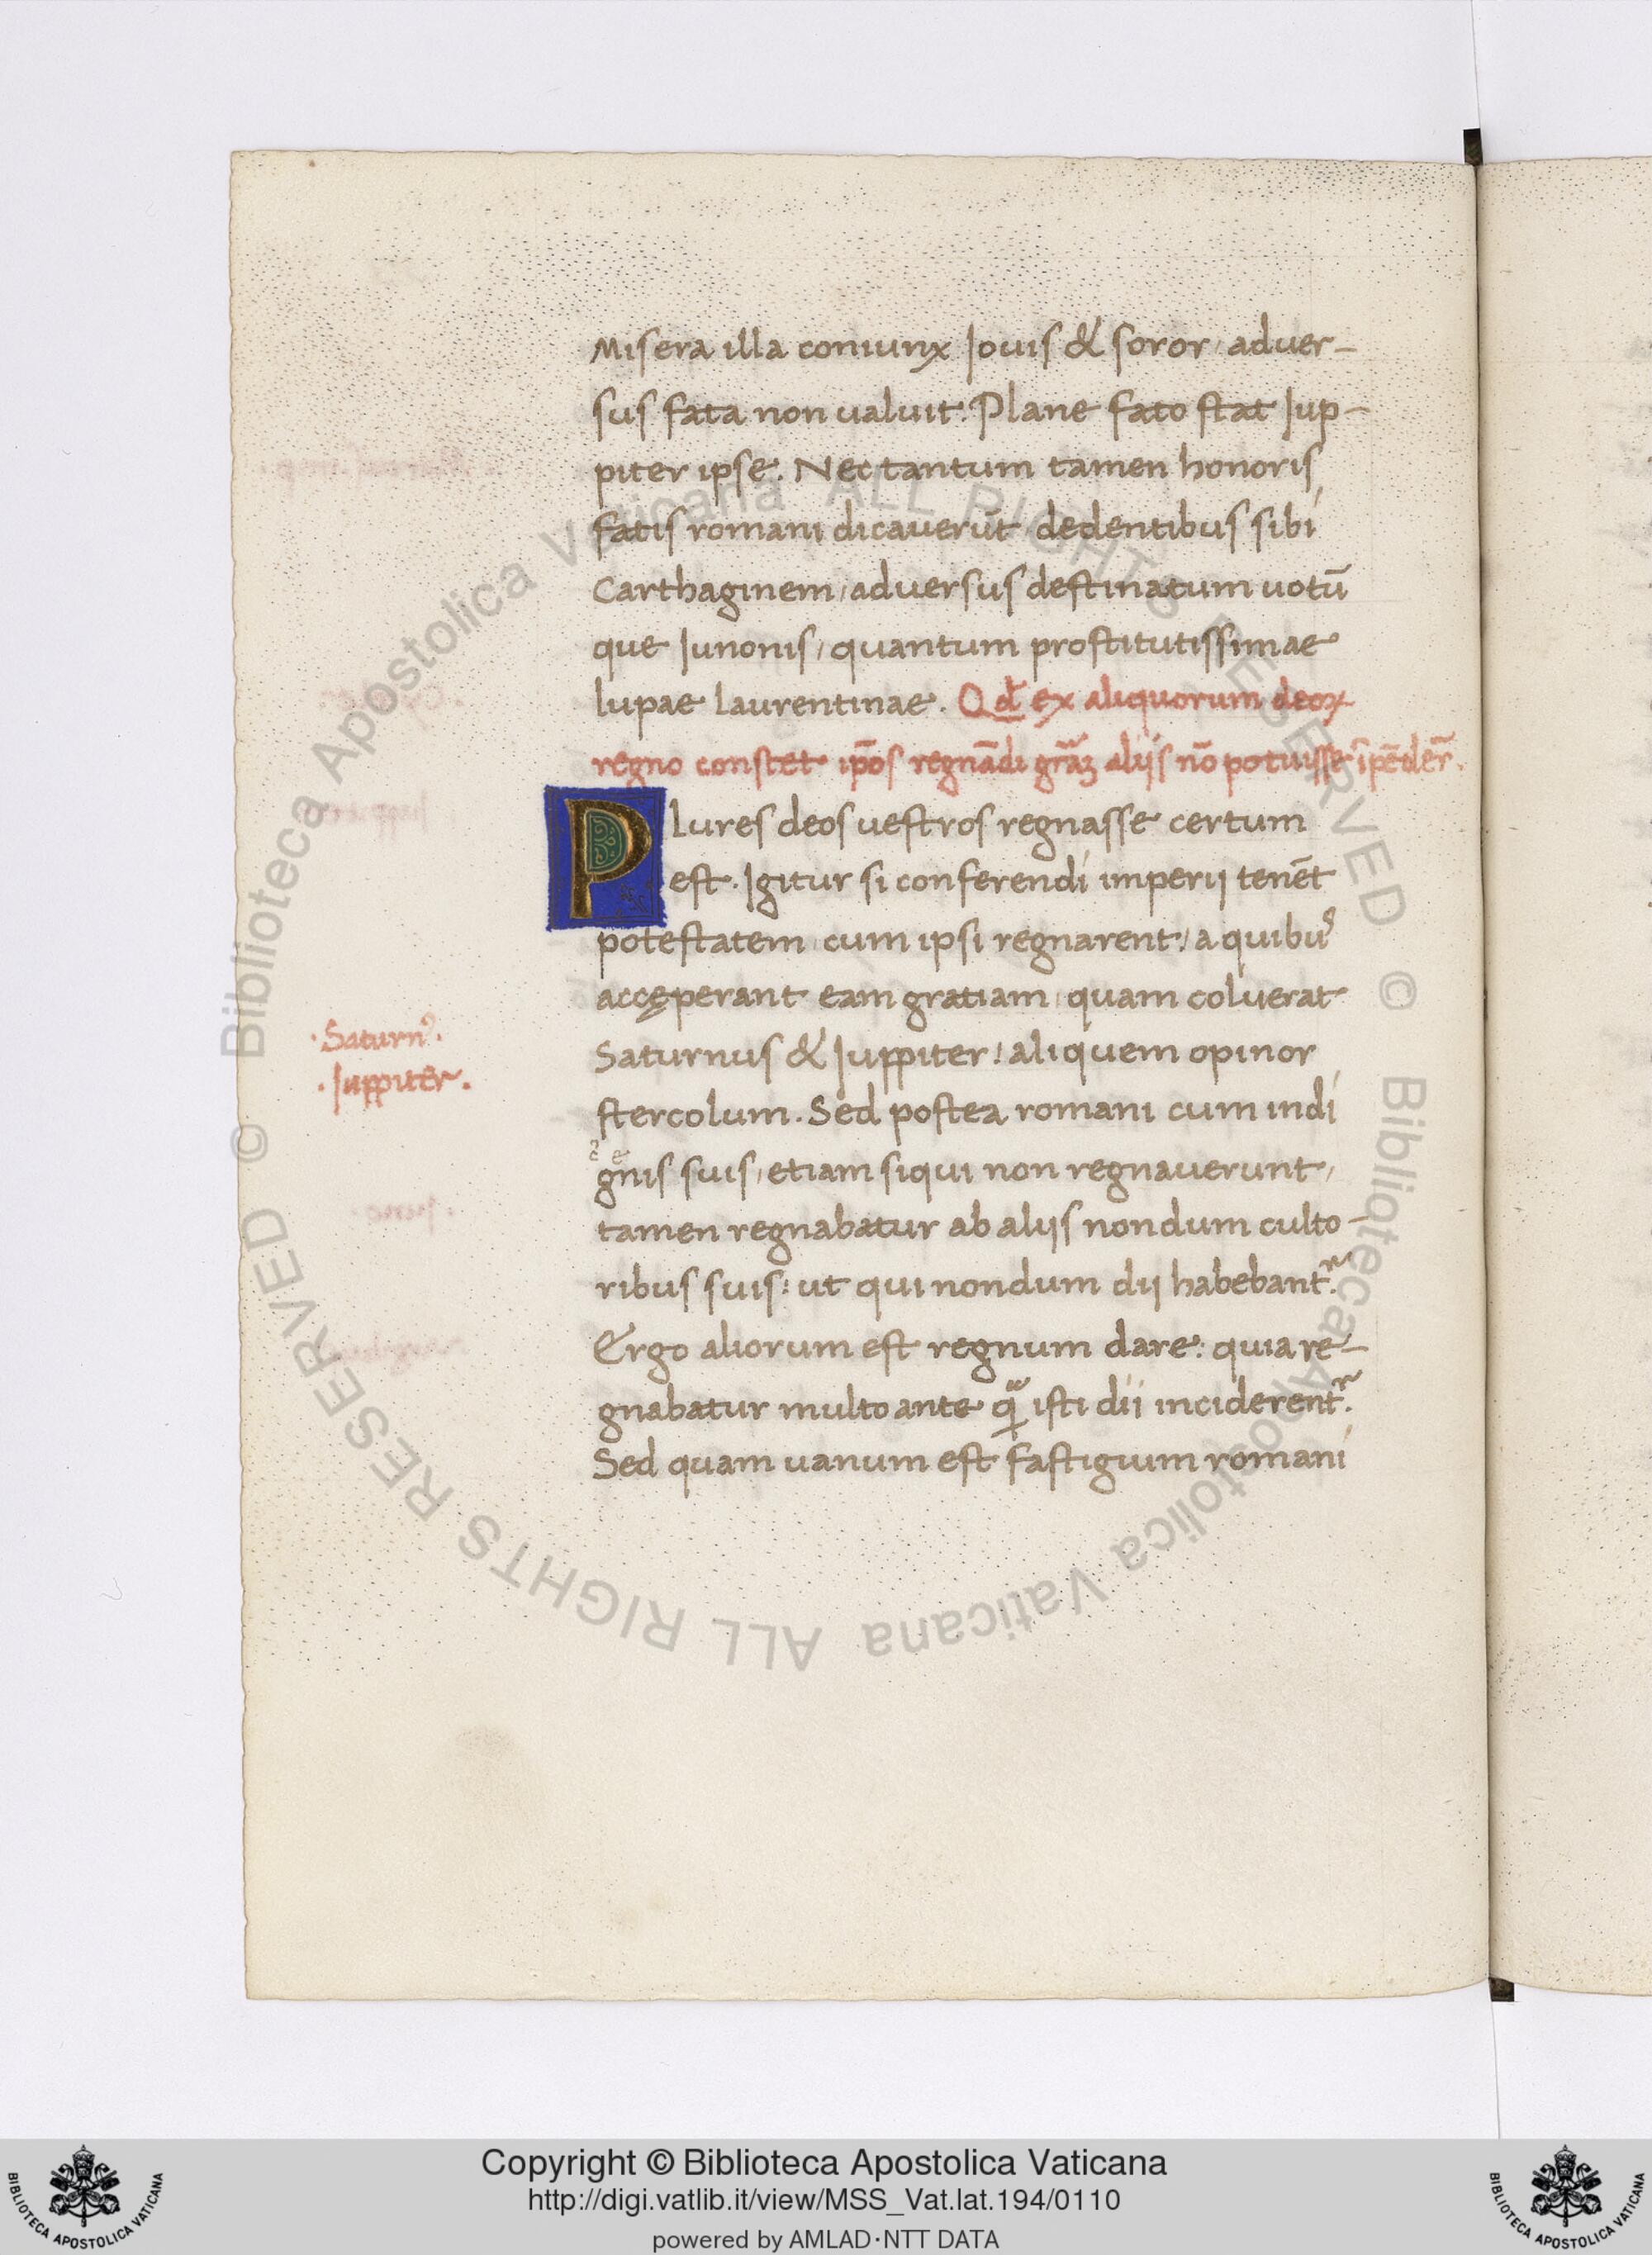 Misera illa coniunx Iouis & soror, aduer-
sus fata non ualuit. Plane fato stat Iup-
piter ipse. Nec tantum tamen honoris
fatis romani dicauerūt dedentibus sibi
Carthaginem, aduersus destinatum uotū
que Iunonis, quantum prostitutissimae
lupae laurentinae. Qđ ex aliquorum deoꝝ
regno constet ip̄os regnādi gr̄aꝫ aliis nō potuisse īpēder̄.
Plures deos uestros regnasse certum
est. Igitur si conferendi imperii tenēt
potestatem, cum ipsi regnarent, a quibuꝰ
accęperant eam gratiam, quam coluerat
·Saturnꝰ·
Saturnus & Iuppiter! aliquem opinor
·Iuppiter.
stercolum. Sed postea romani cum indi
gnis suis, etiam siqui non regnauerunt,
tamen regnabatur ab aliis nondum culto-
ribus suis: ut qui nondum dii habebant᷑.
Ergo aliorum est regnum dare: quia re-
gnabatur multo ante qᷓ isti dii inciderent᷑.
Sed quam uanum est fastigium romani
© Biblioteca Apostolica Vaticana ALL RIGHTS RESERVED © Biblioteca Apostolica Vaticana ALL RIGHTS RESERVED
Copyright © Biblioteca Apostolica Vaticana
http://digi.vatlib.it/view/MSS_Vat.lat.194/0110
powered by AMLAD·NTT DATA
BIBLIOTECA APOSTOLICA VATICANA
BIBLIOTECA APOSTOLICA VATICANA